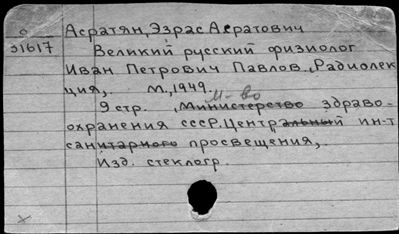 О Асратян, Эзрас Асратович
31617 Великий русский физиолог
Иван Петрович Павлов. Радиолек
ция,. М., 1949.
М-во
9 стр. , Министерство здраво-
охранения СССР. Центральный ин-т
санитарного просвещения,.
Изд. стеклогр.